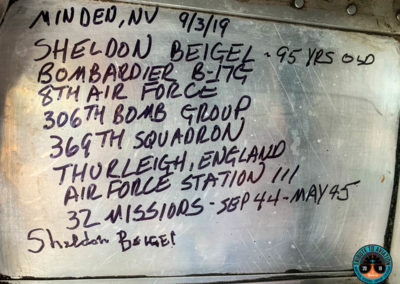 MINDEN, NV 9/3/19
SHELDON BEIGEL - 95 YRS OLD
BOMBARDIER B-17G
8TH AIR FORCE
306TH BOMB GROUP
369TH SQUADRON
THURLEIGH, ENGLAND
AIR FORCE STATION 111
32 MISSIONS - SEP 44 - MAY 45
Sheldon BEIGEl